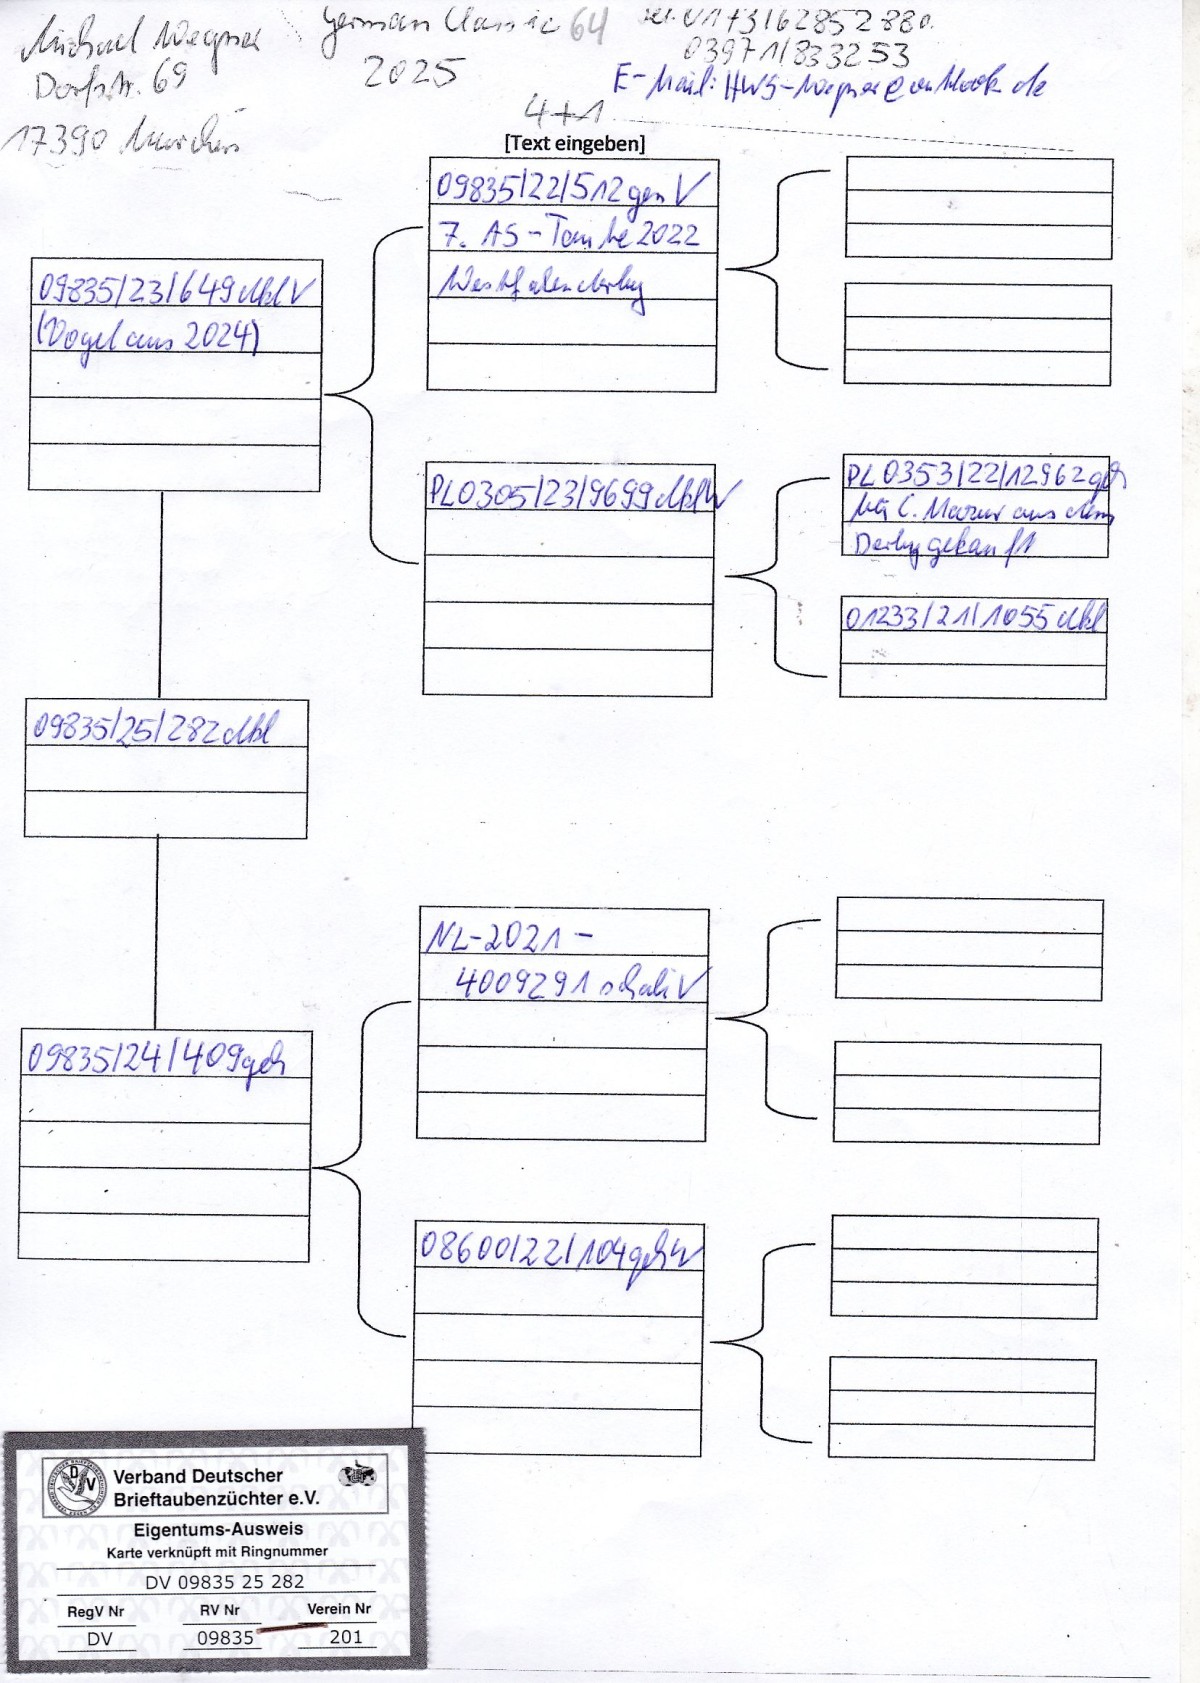 Michael Wegner
Dorfstr. 69
17390 Murchin
German Classic 64
2025
4+1
Tel. 0173/6285288
03971/833253
E-Mail: HWS-Wegner@outlook.de
[Text eingeben]
09835/23/649 dkl V
(Vogel aus 2024)
09835/22/512 gen V
7. AS-Taube 2022
Westfalenderby
PL0305/23/9699 dkl W
PL0353/22/12962 geh
bei C. Mazur aus dem
Derby gekauft
01233/21/1055 dkl
09835/25/282 dkl
NL-2021-
4009291 schali V
09835/24/409 geh
08600/22/104 geh W
Verband Deutscher
Brieftaubenzüchter e.V.
Eigentums-Ausweis
Karte verknüpft mit Ringnummer
DV 09835 25 282
RegV Nr RV Nr Verein Nr
DV 09835 201